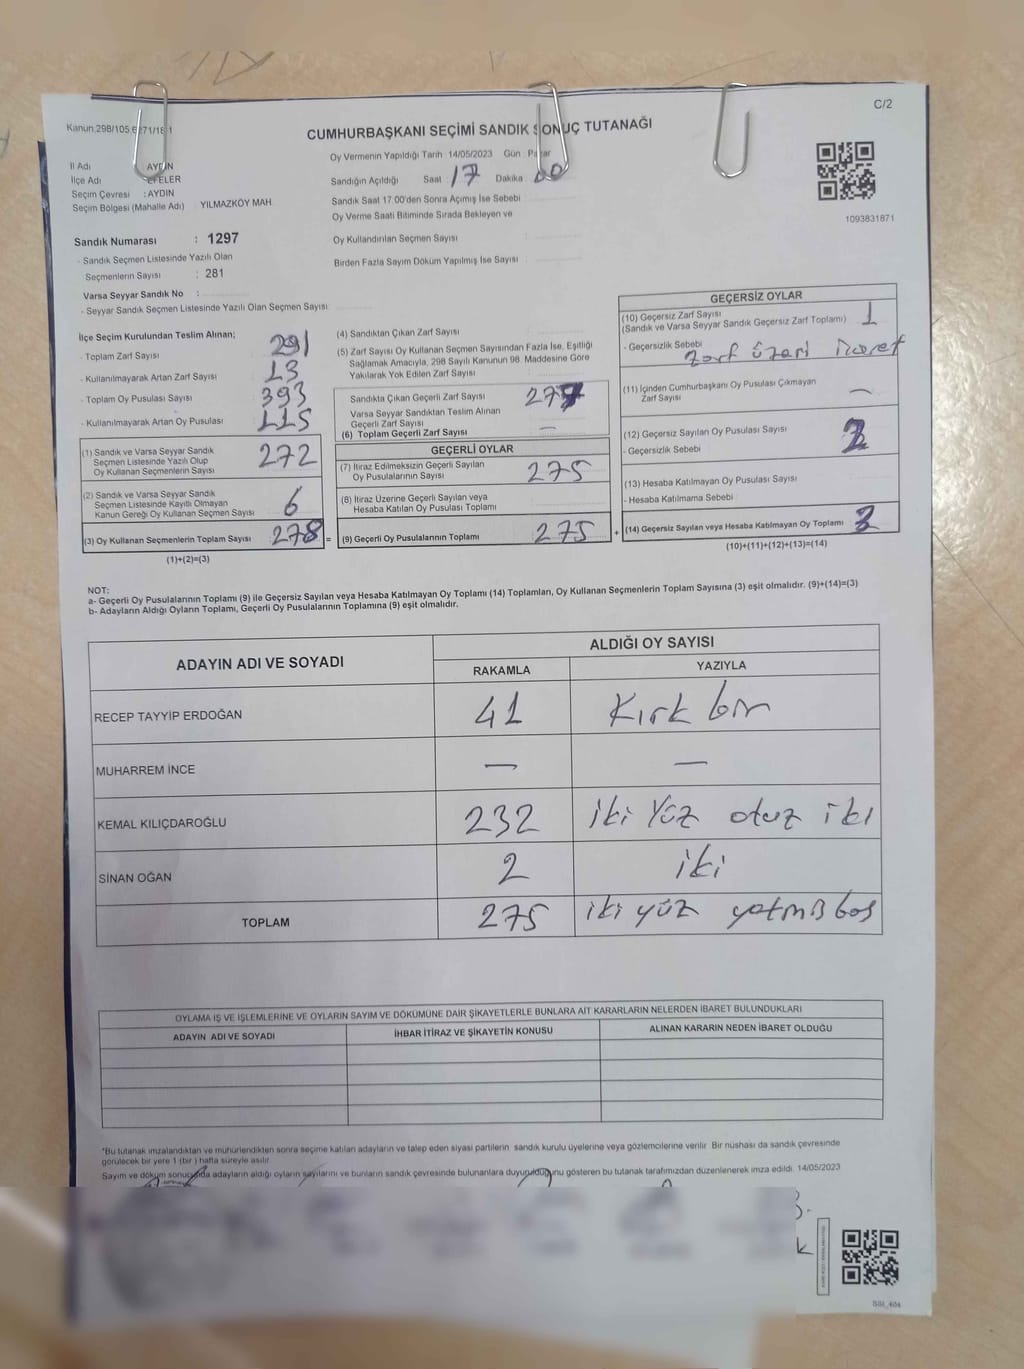 C/2
CUMHURBAŞKANI SEÇİMİ SANDIK SONUÇ TUTANAĞI
Oy Vermenin Yapıldığı Tarih 14/05/2023 Gün Pazar
İl Adı AYDIN
İlçe Adı EFELER
Seçim Çevresi : AYDIN
Seçim Bölgesi (Mahalle Adı) YILMAZKÖY MAH.
Sandık Numarası : 1297
- Sandık Seçmen Listesinde Yazılı Olan
Seçmenlerin Sayısı : 281
Varsa Seyyar Sandık No :
- Seyyar Sandık Seçmen Listesinde Yazılı Olan Seçmen Sayısı
Sandığın Açıldığı Saat 17 Dakika 00
Sandık Saat 17.00'den Sonra Açımış İse Sebebi
Oy Verme Saati Bitiminde Sırada Bekleyen ve
Oy Kullandırılan Seçmen Sayısı
Birden Fazla Sayım Döküm Yapılmış İse Sayısı
1093831871
İlçe Seçim Kurulundan Teslim Alınan;
- Toplam Zarf Sayısı 291
- Kullanılmayarak Artan Zarf Sayısı 13
- Toplam Oy Pusulası Sayısı 393
- Kullanılmayarak Artan Oy Pusulası 115
(1) Sandık ve Varsa Seyyar Sandık
Seçmen Listesinde Yazılı Olup
Oy Kullanan Seçmenlerin Sayısı 272
(2) Sandık ve Varsa Seyyar Sandık
Seçmen Listesinde Kayıtlı Olmayan
Kanun Gereği Oy Kullanan Seçmen Sayısı 6
(3) Oy Kullanan Seçmenlerin Toplam Sayısı 278 =
(1)+(2)=(3)
(4) Sandıktan Çıkan Zarf Sayısı
(5) Zarf Sayısı Oy Kullanan Seçmen Sayısından Fazla İse, Eşitliği
Sağlamak Amacıyla, 298 Sayılı Kanunun 98. Maddesine Göre
Yakılarak Yok Edilen Zarf Sayısı
Sandıkta Çıkan Geçerli Zarf Sayısı
Varsa Seyyar Sandıktan Teslim Alınan
Geçerli Zarf Sayısı
(6) Toplam Geçerli Zarf Sayısı —
GEÇERLİ OYLAR
(7) İtiraz Edilmeksizin Geçerli Sayılan
Oy Pusulalarının Sayısı 275
(8) İtiraz Üzerine Geçerli Sayılan veya
Hesaba Katılan Oy Pusulası Toplamı
(9) Geçerli Oy Pusulalarının Toplamı 275 +
GEÇERSİZ OYLAR
(10) Geçersiz Zarf Sayısı 1
(Sandık ve Varsa Seyyar Sandık Geçersiz Zarf Toplamı)
- Geçersizlik Sebebi Zarf üzeri
(11) İçinden Cumhurbaşkanı Oy Pusulası Çıkmayan
Zarf Sayısı —
(12) Geçersiz Sayılan Oy Pusulası Sayısı
- Geçersizlik Sebebi
(13) Hesaba Katılmayan Oy Pusulası Sayısı
- Hesaba Katılmama Sebebi
(14) Geçersiz Sayılan veya Hesaba Katılmayan Oy Toplamı 3
(10)+(11)+(12)+(13)=(14)
NOT:
a- Geçerli Oy Pusulalarının Toplamı (9) ile Geçersiz Sayılan veya Hesaba Katılmayan Oy Toplamı (14) Toplamları, Oy Kullanan Seçmenlerin Toplam Sayısına (3) eşit olmalıdır. (9)+(14)=(3)
b- Adayların Aldığı Oyların Toplamı, Geçerli Oy Pusulalarının Toplamına (9) eşit olmalıdır.
ADAYIN ADI VE SOYADI ALDIĞI OY SAYISI
RAKAMLA YAZIYLA
RECEP TAYYİP ERDOĞAN 41 Kırk bir
MUHARREM İNCE — —
KEMAL KILIÇDAROĞLU 232 iki Yüz otuz iki
SİNAN OĞAN 2 iki
TOPLAM 275 iki yüz yetmiş beş
OYLAMA İŞ VE İŞLEMLERİNE VE OYLARIN SAYIM VE DÖKÜMÜNE DAİR ŞİKAYETLERLE BUNLARA AİT KARARLARIN NELERDEN İBARET BULUNDUKLARI
ADAYIN ADI VE SOYADI İHBAR İTİRAZ VE ŞİKAYETİN KONUSU ALINAN KARARIN NEDEN İBARET OLDUĞU
*Bu tutanak imzalandıktan ve mühürlendikten sonra seçime katılan adayların ve talep eden siyasi partilerin sandık kurulu üyelerine veya gözlemcilerine verilir. Bir nüshası da sandık çevresinde
görülecek bir yere 1 (bir) hafta süreyle asılır.
Sayım ve döküm sonucunda adayların aldığı oyların sayılarını ve bunların sandık çevresinde bulunanlara duyurulduğunu gösteren bu tutanak tarafımızdan düzenlenerek imza edildi. 14/05/2023